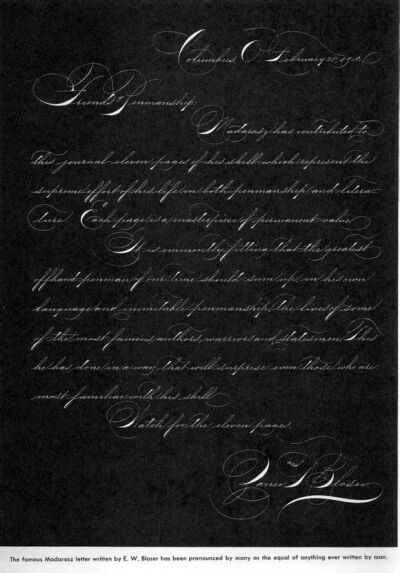 Columbus, O. February 25, 19
Friends of Penmanship:
Madarasz has contributed to
this journal eleven pages of his skill which represent the
supreme effort of his life in both penmanship and litera-
ture. Each page is a masterpiece of permanent value.
It is eminently fitting that the greatest
offhand penman of our time should sum up, in his own
language and inimitable penmanship, the lives of some
of the most famous authors, warriors and statesmen. This
he has done in a way that will surprise even those who are
most familiar with his skill.
Watch for the eleven pages.
Zaner and Bloser
The famous Madarasz letter written by E. W. Bloser has been pronounced by many as the equal of anything ever written by man.